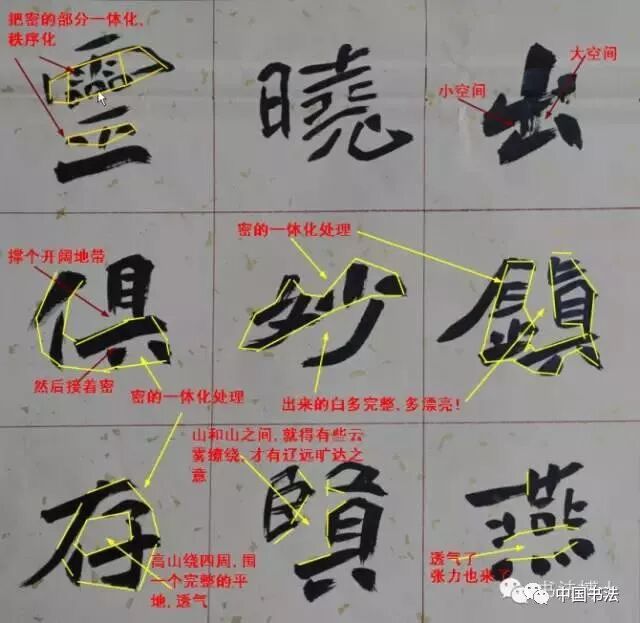 把密的部分一体化,
秩序化
靈
曉
出
大空间
小空间
密的一体化处理
撑个开阔地带
俱
妙
鎮
然后接着密
密的一体化处理
出来的白多完整,多漂亮!
山和山之间,就得有些云
雾缭绕,才有辽远旷达之
意
存
賢
燕
高山绕四周,围
一个完整的平
地,透气
透气了
张力也来了
书法博士
中国书法